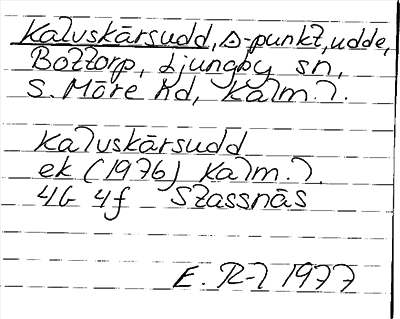 Kalvskärsudd, Δ-punkt, udde,
Bottorp, Ljungby sn,
S. Möre hd, Kalm. l.
Kalvskärsudd
ek (1976) Kalm. l.
4G 4f Stassnäs
E. R-l 1977